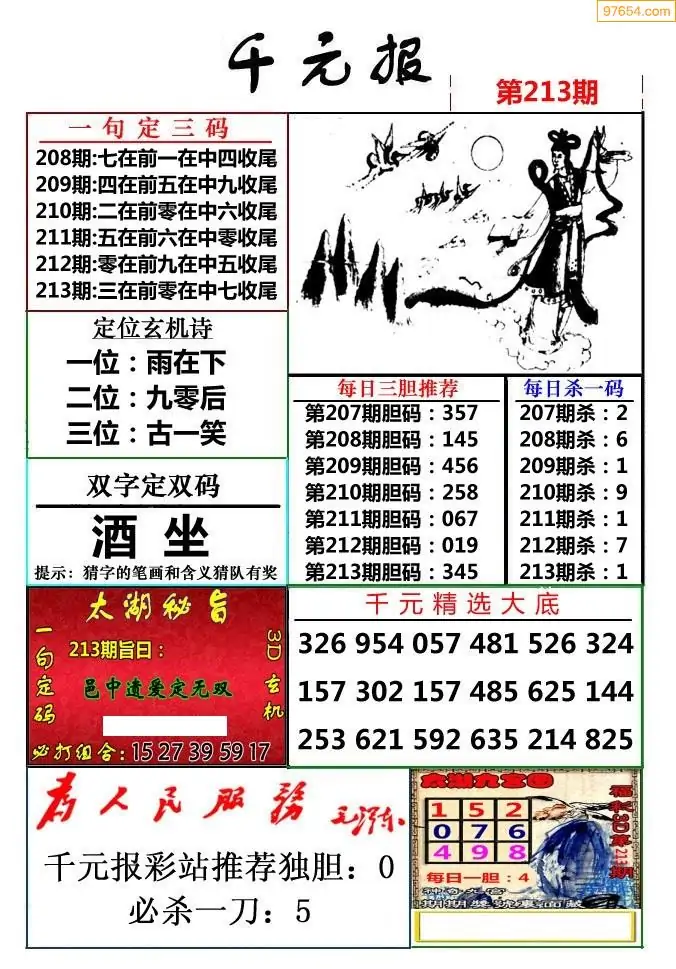 97654.com
千元报
第213期
一句定三码
208期:七在前一在中四收尾
209期:四在前五在中九收尾
210期:二在前零在中六收尾
211期:五在前六在中零收尾
212期:零在前九在中五收尾
213期:三在前零在中七收尾
定位玄机诗
一位：雨在下
二位：九零后
三位：古一笑
双字定双码
酒 坐
提示：猜字的笔画和含义猜队有奖
每日三胆推荐
第207期胆码：357
第208期胆码：145
第209期胆码：456
第210期胆码：258
第211期胆码：067
第212期胆码：019
第213期胆码：345
每日杀一码
207期杀：2
208期杀：6
209期杀：1
210期杀：9
211期杀：1
212期杀：7
213期杀：1
太湖秘旨
一句定码
213期旨曰：
邑中遗爱定无双
3D玄机
必打组合:15 27 39 59 17
千元精选大底
326 954 057 481 526 324
157 302 157 485 625 144
253 621 592 635 214 825
为人民服务
毛泽东
千元报彩站推荐独胆：0
必杀一刀：5
太湖九宫图
福彩3D第213期
1 5 2
0 7 6
4 9 8
每日一胆：4
期期奖号裏面藏